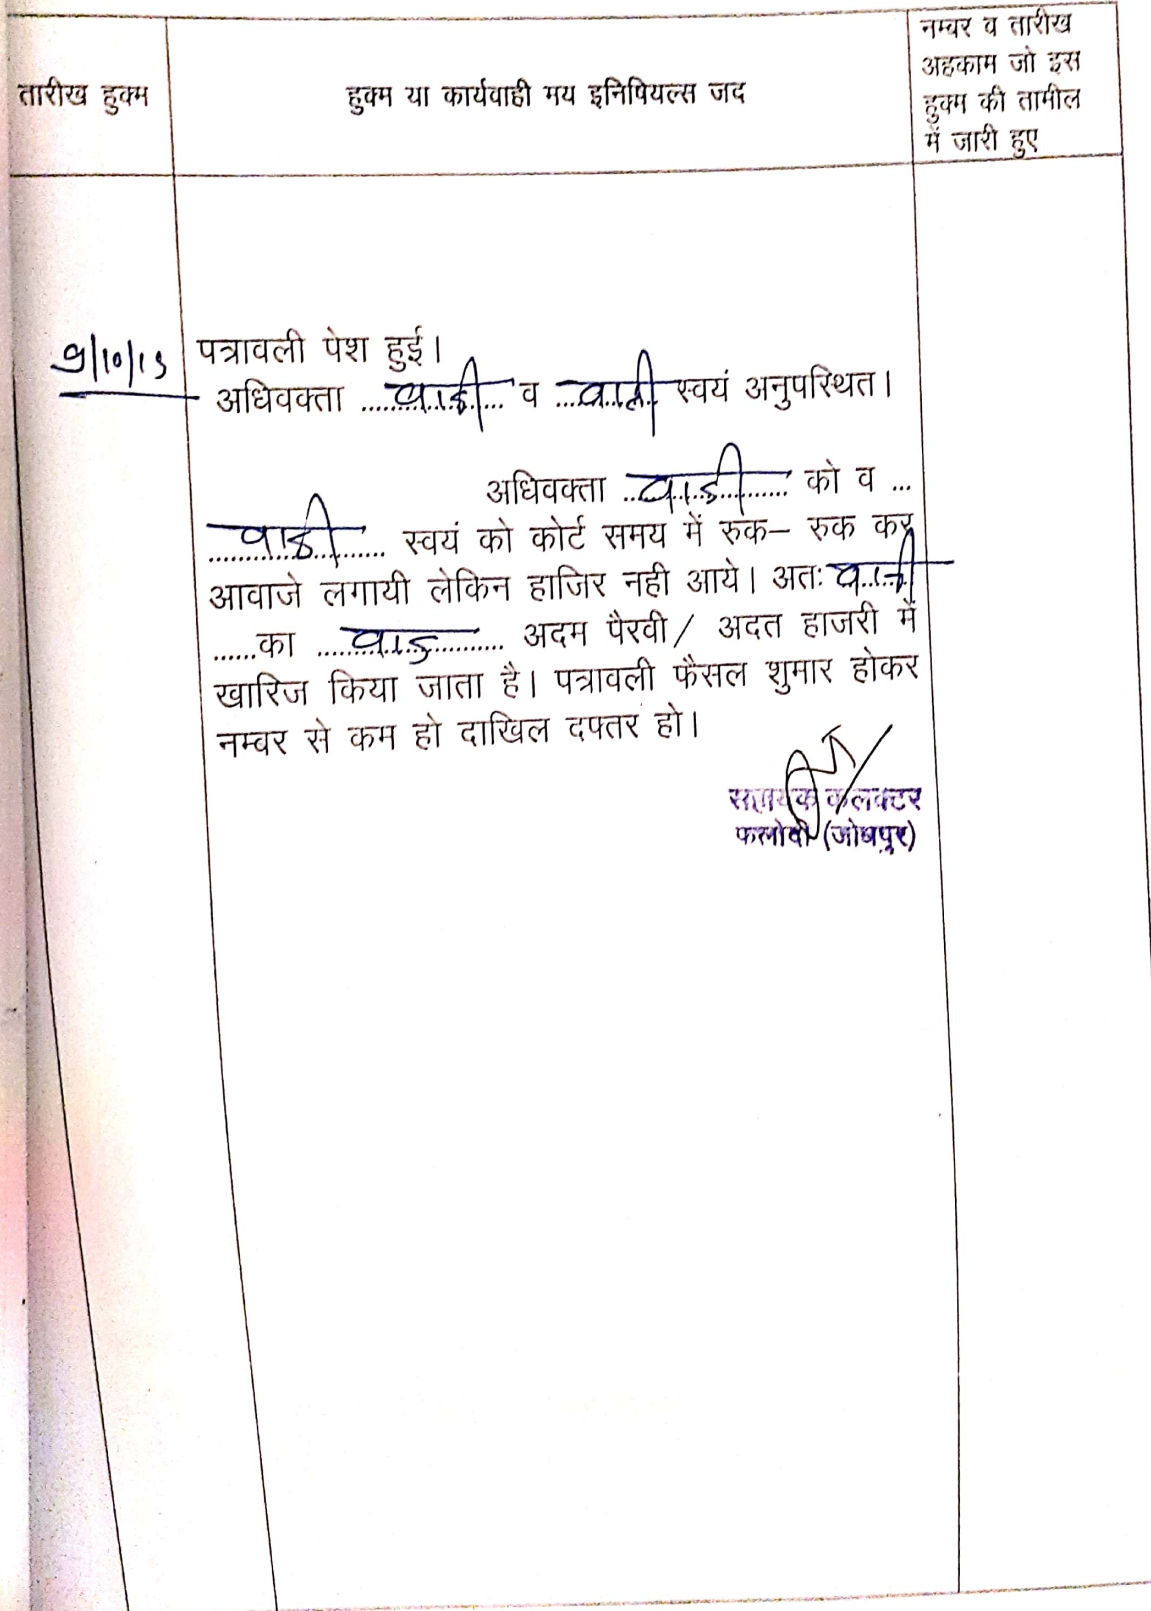 तारीख हुक्म
हुक्म या कार्यवाही मय इनिषियल्स जद
नम्बर व तारीख
अहकाम जो इस
हुक्म की तामील
में जारी हुए
9/10/13
पत्रावली पेश हुई।
अधिवक्ता ....वादी.... व ....वादी स्वयं अनुपस्थित।
अधिवक्ता ....वादी.... को व ...
....वादी.... स्वयं को कोर्ट समय में रुक– रुक कर
आवाजे लगायी लेकिन हाजिर नही आये। अतः वादी
......का ....वाद.... अदम पैरवी/ अदत हाजरी में
खारिज किया जाता है। पत्रावली फैसल शुमार होकर
नम्बर से कम हो दाखिल दफ्तर हो।
सहायक कलक्टर
फलोदी (जोधपुर)